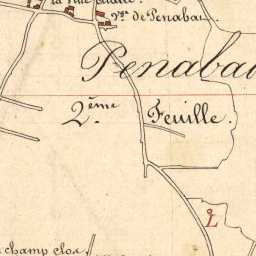 de Penabau
Penabau
2.ème Feuille.
L
champ clos